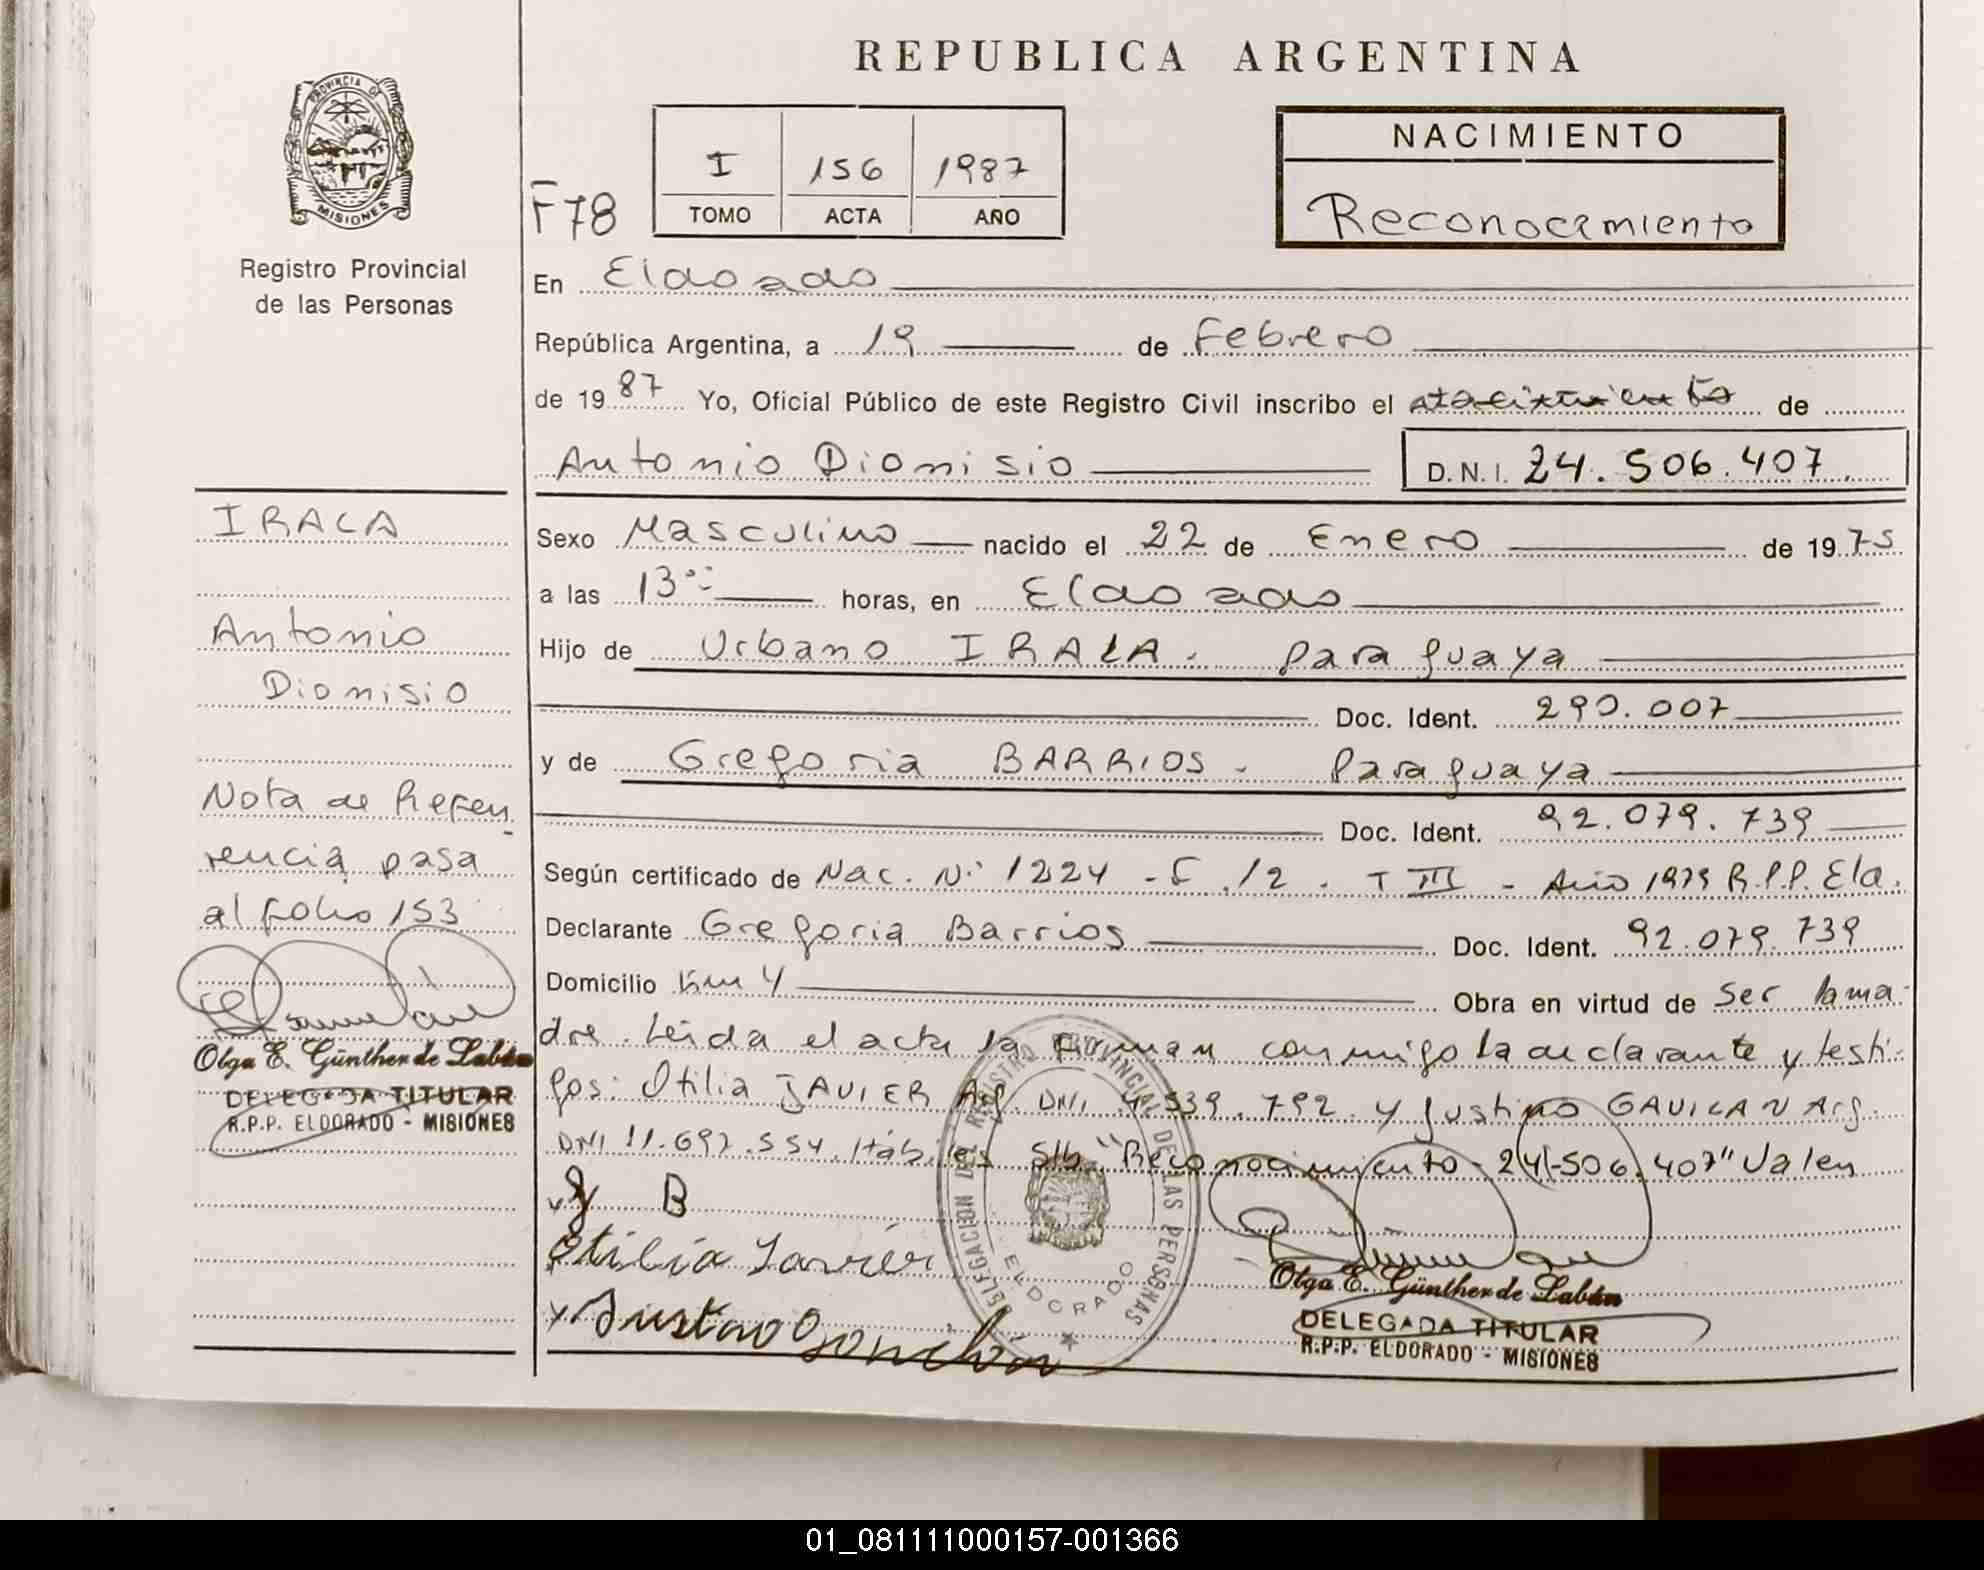 REPUBLICA ARGENTINA
PROVINCIA DE
MISIONES
Registro Provincial
de las Personas
F78
I 156 1987
TOMO ACTA AÑO
NACIMIENTO
Reconocimiento
En Eldorado
República Argentina, a 19 de Febrero
de 1987 Yo, Oficial Público de este Registro Civil inscribo el de
Antonio Dionisio D.N.I. 24.506.407
IRALA
Antonio
Dionisio
Nota de Referen
rencia pasa
al folio 153
Olga E. Günther de Labán
DELEGADA TITULAR
R.P.P. ELDORADO - MISIONES
Sexo Masculino nacido el 22 de Enero de 1975
a las 13 horas, en Eldorado
Hijo de Urbano IRALA. Paraguaya
Doc. Ident. 290.007
y de Gregoria BARRIOS. Paraguaya
Doc. Ident. 92.079.739
Según certificado de Nac. Nº 1224 - F. 12. T III - Año 1975 R.P.P. Eld.
Declarante Gregoria Barrios Doc. Ident. 92.079.739
Domicilio Km 4 Obra en virtud de ser la ma-
dre. Leida el acta la firman conmigo la declarante y testi-
gos: Otilia JAVIER Arg. DNI 4.539.792. y Justino GAVILAN Arg.
DNI 11.692.554. Hábiles S/b. "Reconocimiento - 24-506.407" Valen
B
Otilia Javier
DELEGACION DEL REGISTRO PROVINCIAL DE LAS PERSONAS
ELDORADO
Olga E. Günther de Labán
DELEGADA TITULAR
R.P.P. ELDORADO - MISIONES
01_081111000157-001366